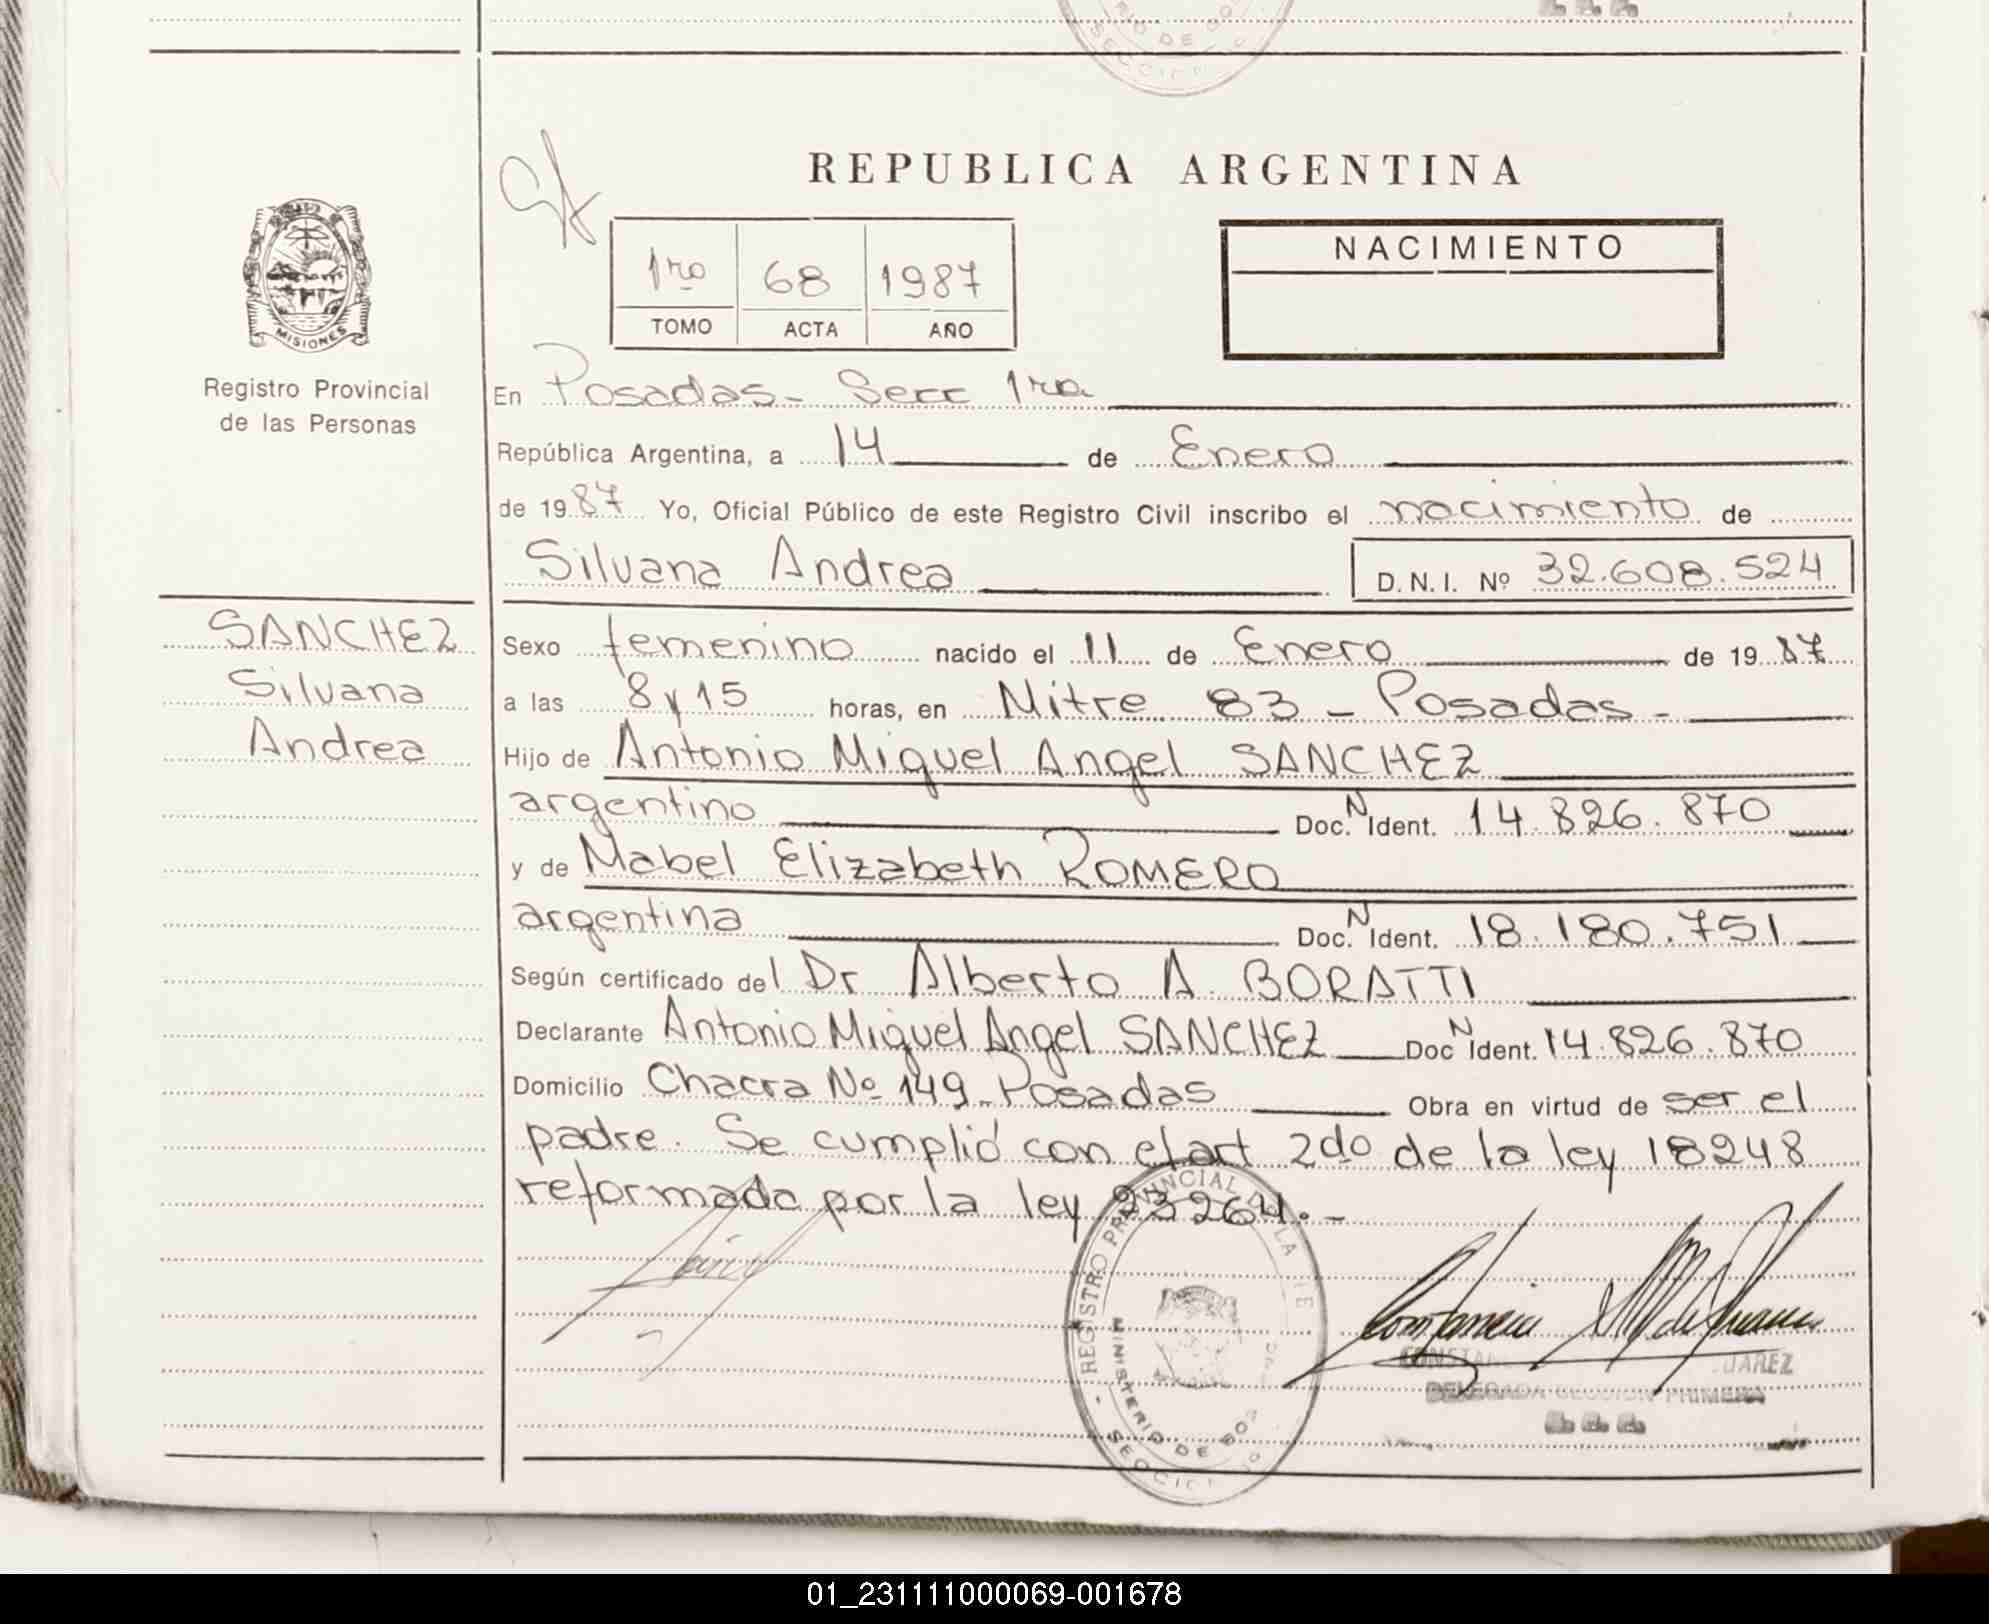 REPUBLICA ARGENTINA
MISIONES
Registro Provincial
de las Personas
1ro 68 1987
TOMO ACTA AÑO
NACIMIENTO
En Posadas - Secc 1ra
República Argentina, a 14 de Enero
de 1987 Yo, Oficial Público de este Registro Civil inscribo el nacimiento de
Silvana Andrea D.N.I. Nº 32.608.524
SANCHEZ
Silvana
Andrea
Sexo femenino nacido el 11 de Enero de 1987
a las 8 y 15 horas, en Mitre 83 - Posadas -
Hijo de Antonio Miguel Angel SANCHEZ
argentino Doc. N Ident. 14.826.870
y de Mabel Elizabeth ROMERO
argentina Doc. N Ident. 18.180.751
Según certificado del Dr Alberto A. BORATTI
Declarante Antonio Miguel Angel SANCHEZ Doc N Ident. 14.826.870
Domicilio Chacra Nº 149 - Posadas Obra en virtud de ser el
padre. Se cumplió con el art 2do de la ley 18248
reformada por la ley 23264. -
REGISTRO PROVINCIAL DE LA
MINISTERIO DE GO
SECCION
JAREZ
DELEGADA SECCION PRIMERA
01_231111000069-001678